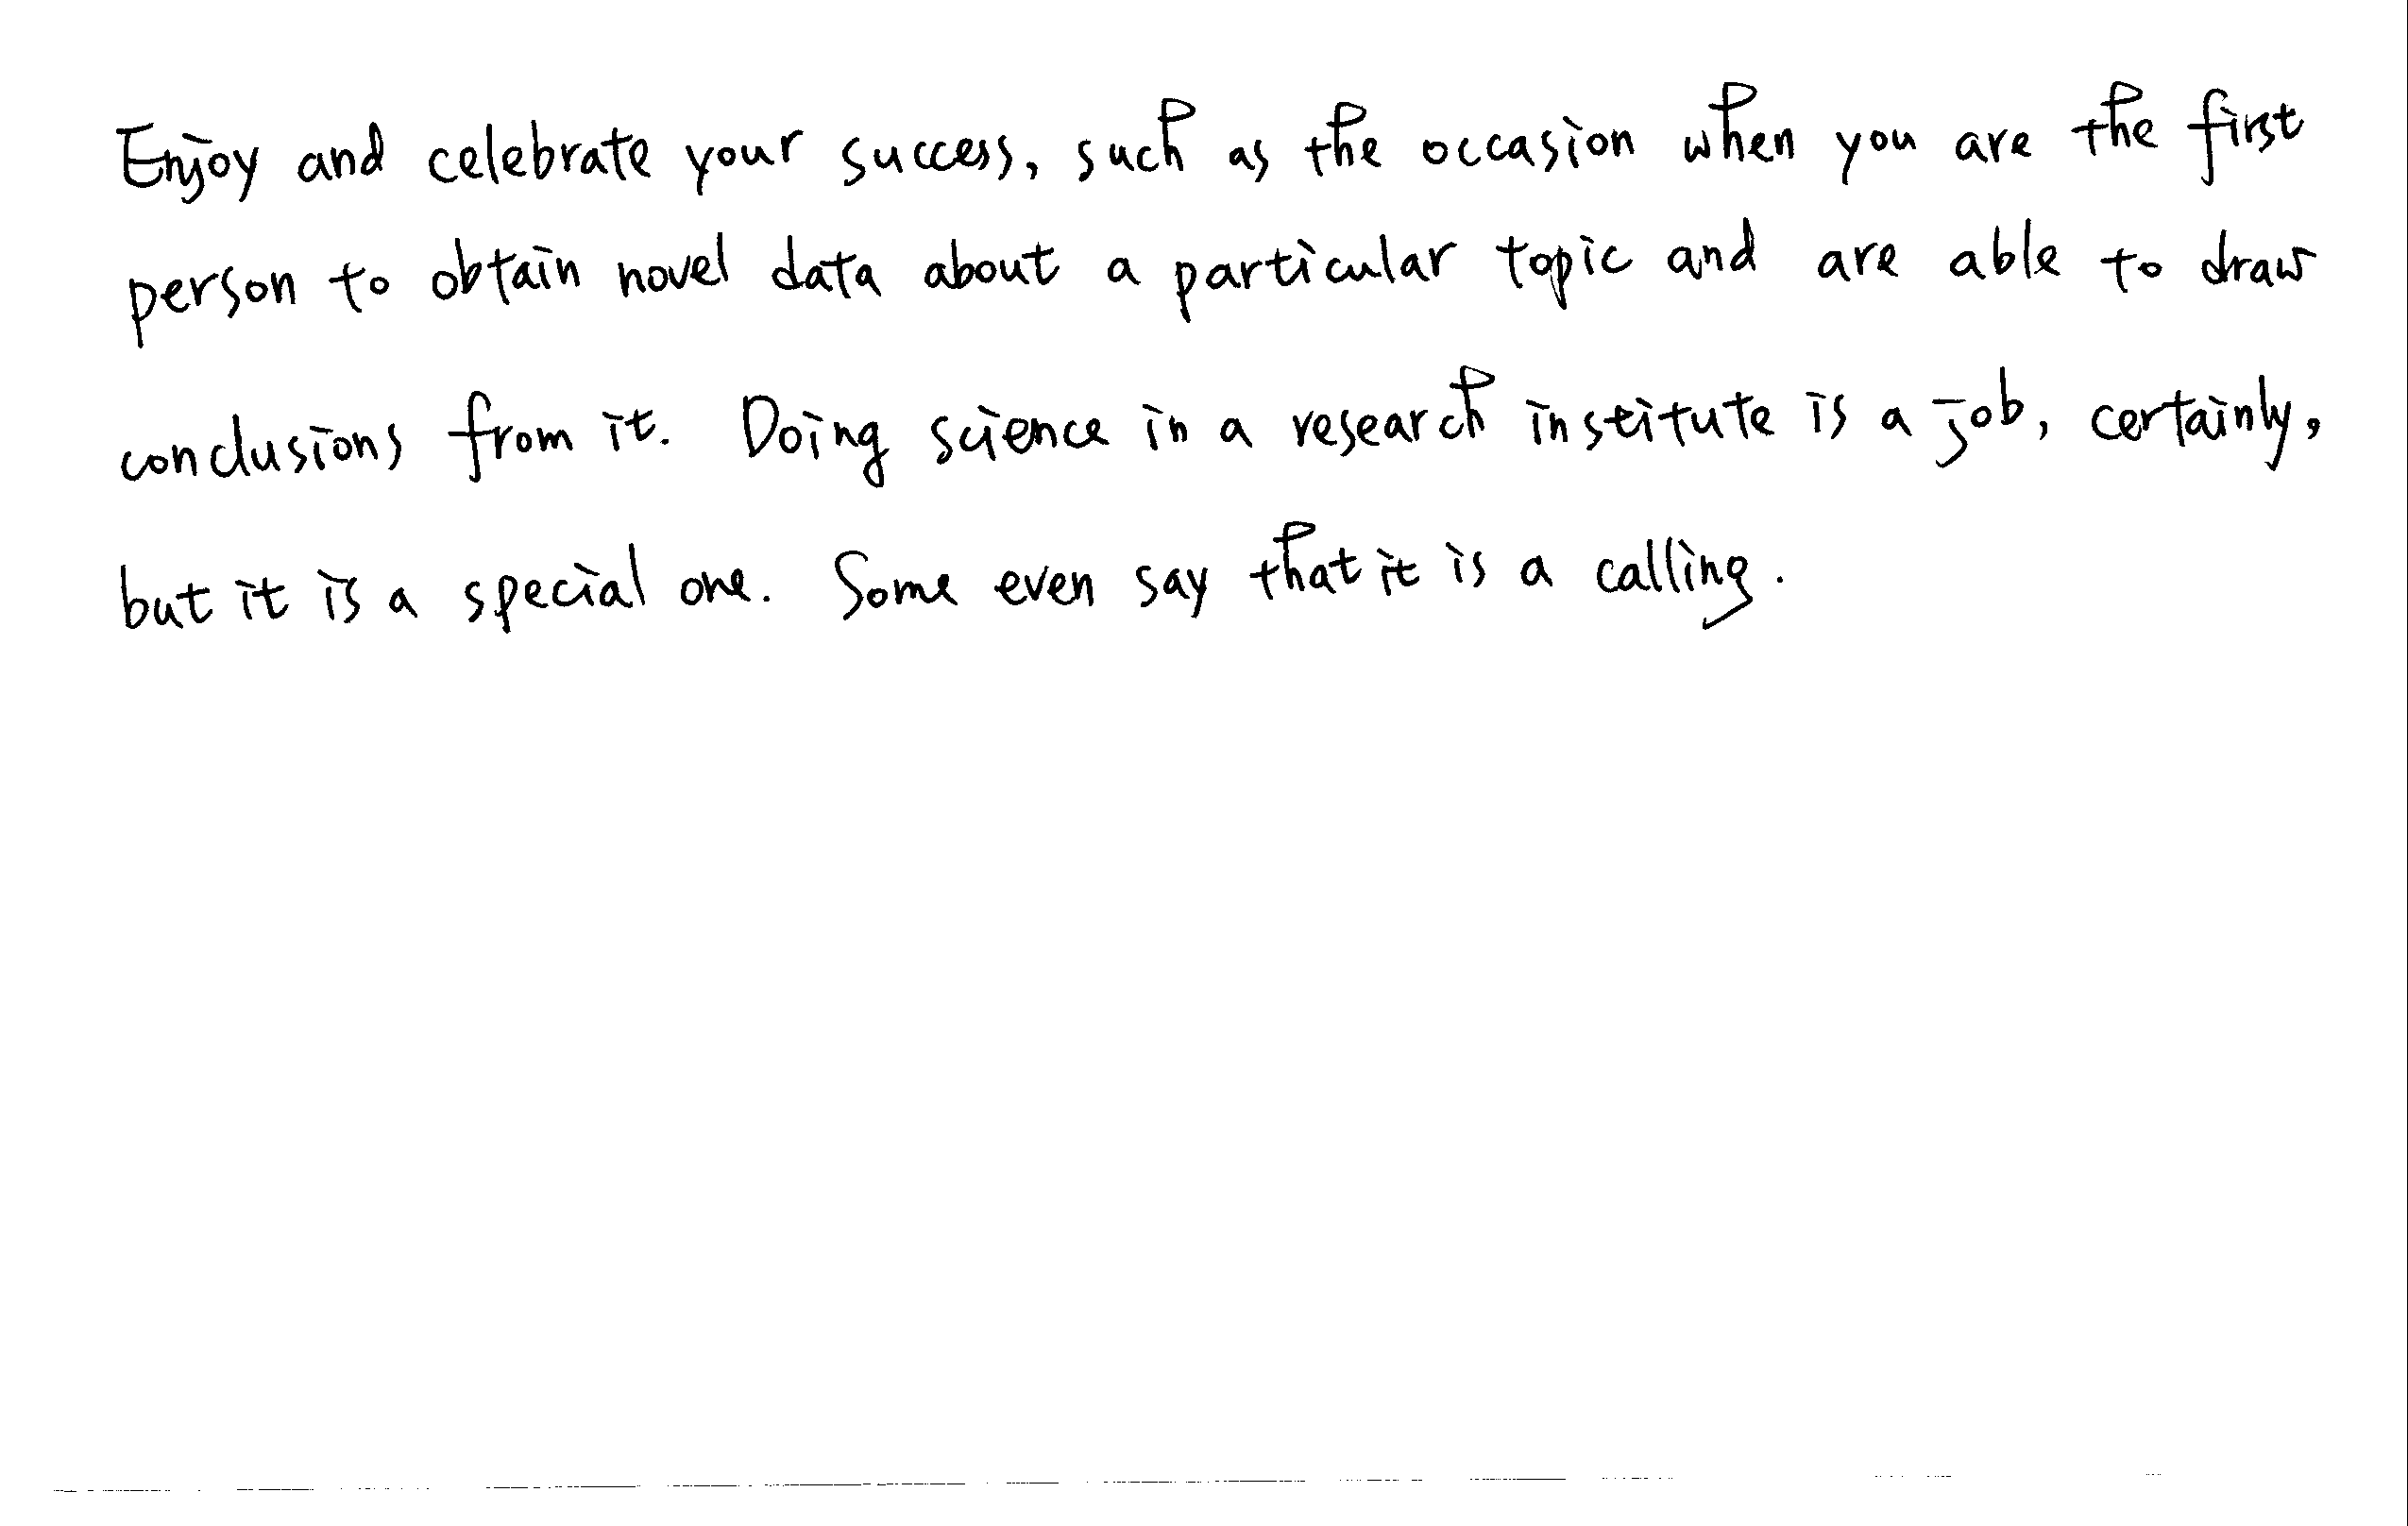 Enjoy and celebrate your success, such as the occasion when you are the first
person to obtain novel data about a particular topic and are able to draw
conclusions from it. Doing science in a research institute is a job, certainly,
but it is a special one. Some even say that it is a calling.